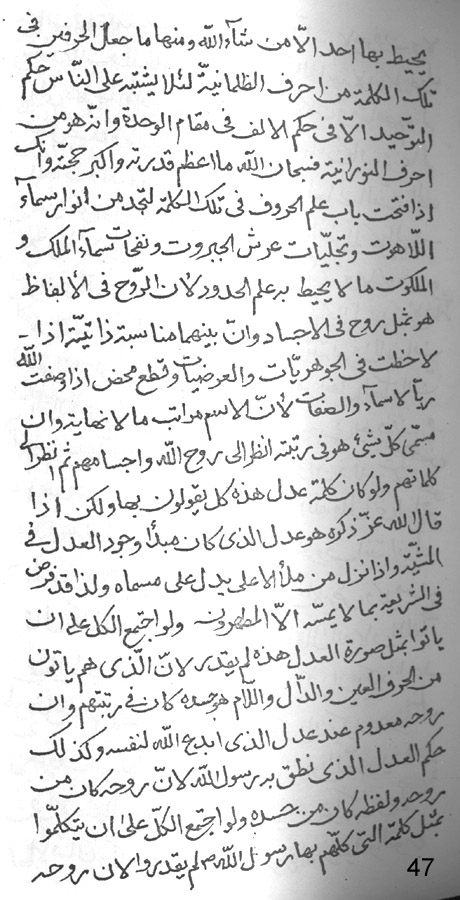 يحيط بها احد الّا من شآء الله و منها ما جعل الحرفين فى
تلك الكلمة من احرف الظلمانيّة لئلا يشتبه على النّاس حكم
التوحيد الّا فى حكم الالف فى مقام الوحدة و انّه هو من
احرف النورانية فسبحان الله ما اعظم قدرته و اكبر حجّته و انك
اذا فتحت باب علم الحروف فى تلك الكلمة لتجد من انوار سمآء
اللّاهوت و تجلّيات عرش الجبروت و نفحات سمآء الملك و
الملكوت ما لا يحيط به علم الحدود لان الرّوح فى الألفاظ
هو بمثل روح فى الاجساد و انّ بينهما مناسبة ذاتيّة اذا
لاحظت فى الجوهريّات و العرضيات و قطع محض اذا وصفت الله
ربّك بالاسمآء و الصفات لأنّ الاسم مراتب ما لا نهاية و ان
مسمّى كلّ شیئ هو فى رتبته انظر الى روح الله و اجسامهم ثم انظر الى
كلماتهم و لو كان كلمة عدل هذه كل يقولون بها ولكن اذا
قال الله عزّ ذكره هو عدل الذى كان مبدأ وجود العدل فى
المشيّة و اذا نزل من ملأ الاعلى يدل على مسماه و لذا قد فرض
فى الشريعة بما لا يمسّه الّا المطهرون و لو اجتمع الكل على ان
ياتوا بمثل صورة العدل هذه لم يقدر لانّ الّذى هم ياتون
من الحرف العين و الدّال و اللّام هو جسده كان فى رتبتهم و ان
روحه معدوم عند عدل الذى ابدع الله لنفسه و كذلك
حكم العدل الذى نطق به رسول الله لانّ روحه كان من
روحه و لفظه كان من جسده و لو اجتمع الكلّ على ان يتكلّموا
بمثل كلمة التى كلّهم بها رسول الله ص لم يقدروا لان روحه
47